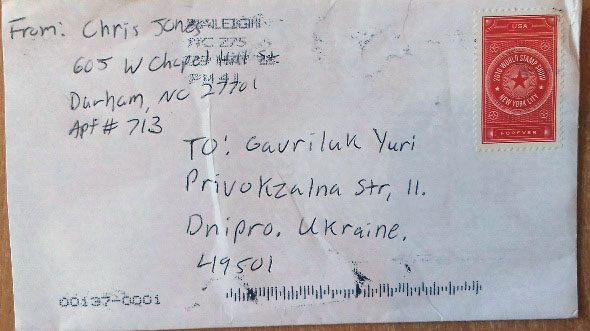 From: Chris Jones
605 W Chapel Hill St
Durham, NC 27701
Apt# 713
RALEIGH
NC 275
USA
2016 WORLD STAMP SHOW
NEW YORK CITY
FOREVER
TO: Gavriluk Yuri
Privokzalna Str, 11.
Dnipro. Ukraine.
49501
00137-0001